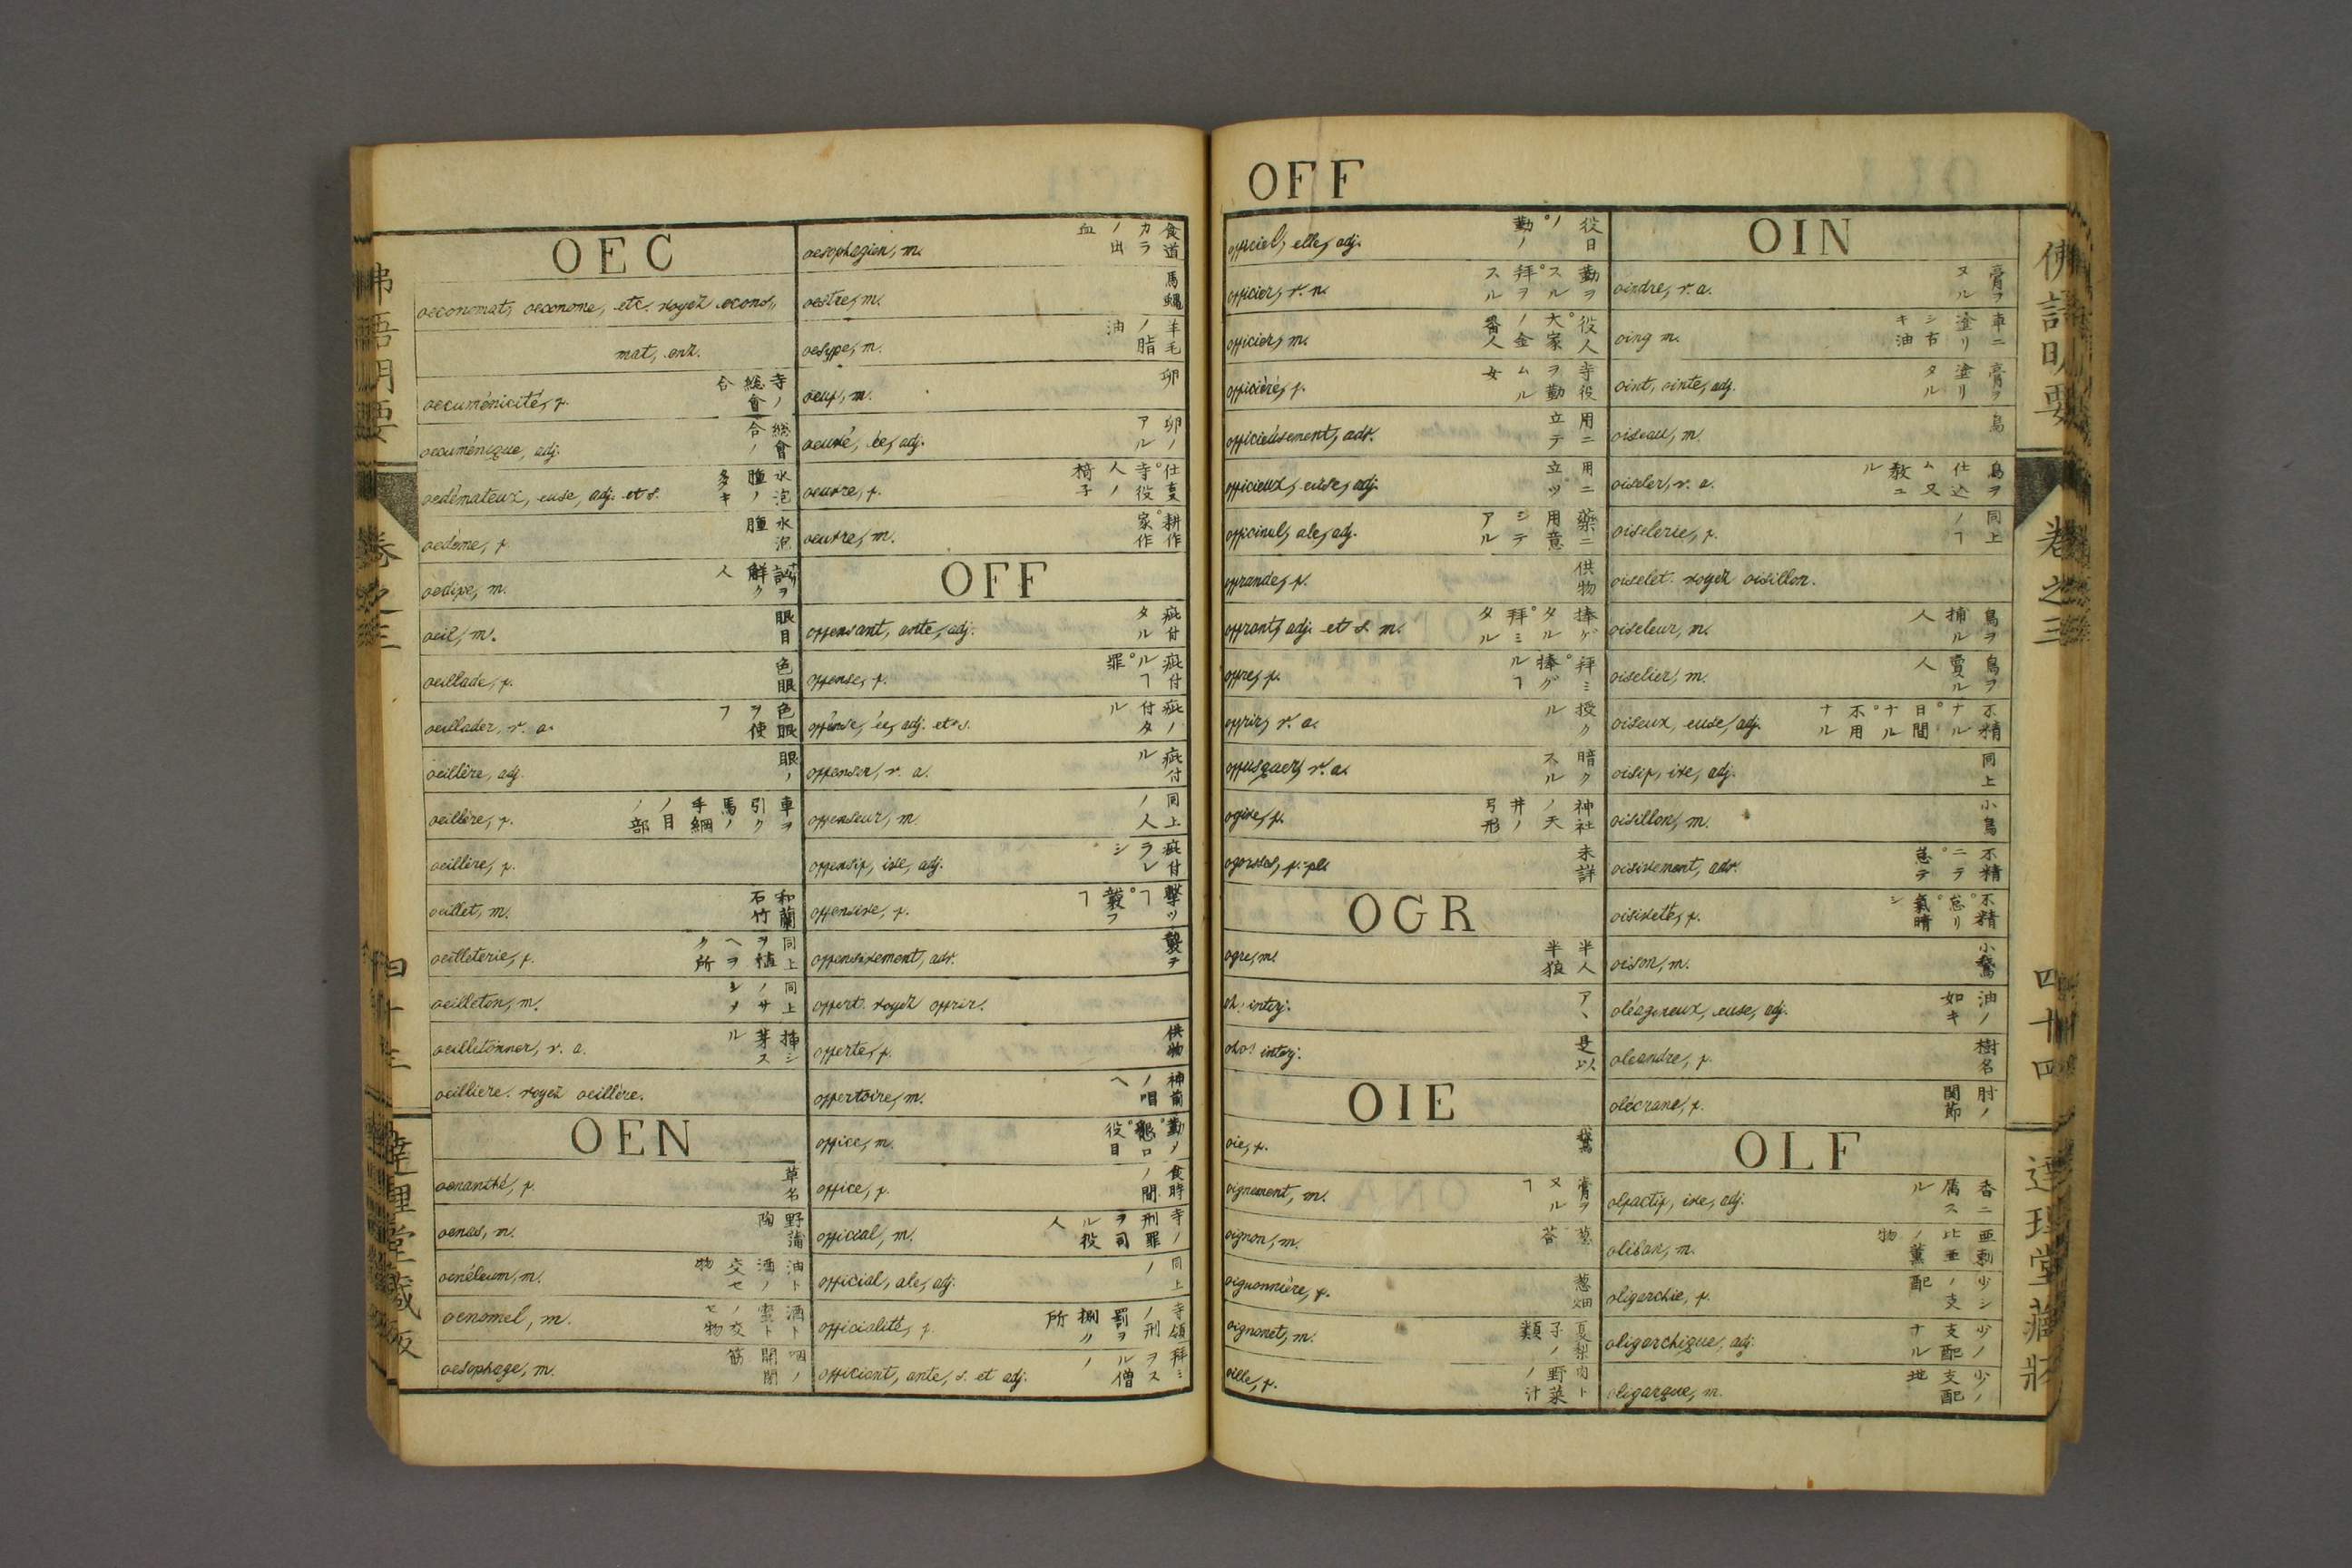 OEC
oeconomat, oeconome, etc. voyez econo,,
mat, enz.
oecuménicité, f. 寺ノ総會合
oecuménique, adj. 総會合ノ
oedémateux, euse, adj. et s. 水泡腫ノ多キ
oedéme, f. 水泡腫
oedipe, m. 謎ヲ解ク人
oeil, m. 眼目
oeillade, f. 色眼
oeillader, v. a. 色眼ヲ使フ
oeillère, adj. 眼ノ
oeillère, f. 車ヲ引ク馬ノ手綱ノ目ノ部
oeillère, f.
oeillet, m. 和蘭石竹
oeilleterie, f. 同上ヲ植ヘヲク所
oeilleton, m. 同上ノサシメ
oeilletonner, v. a. 挿シ芽スル
oeilliere. voyez oeillère.
OEN
oenanthé, f. 草名
oenas, m. 野蒲陶
oenéleum, m. 油ト酒ノ交セ物
oenomel, m. 酒ト蜜トノ交セ物
oesophage, m. 咽ノ開閉筋
oesophagien, m. 食道カラノ出血
oestre, m. 馬蠅
oesype, m. 羊毛ノ脂油
oeuf, m. 卵
oeuvé, ée, adj. 卵ノアル
oeuvre, f. 仕事。寺役人ノ椅子
oeuvre, m. 耕作。家作
OFF
offensant, ante, adj. 疵付タル
offense, f. 疵付ルヿ。罪
offensé, ée, adj. et s. 疵ノ付タル
offenser, v. a. 疵付ル
offenseur, m. 同上ノ人
offensif, ive, adj. 疵付ラレシ
offensive, f. 撃ツヿ。襲フヿ
offensivement, adv. 襲テ
offert. voyez offrir.
offerte, f. 供物
offertoire, m. 神前ノ唱ヘ
office, m. 勤メ。懇ロ。役目
office, f. 食時ノ間
official, m. 寺ノ刑罪ヲ司ル役人
official, ale, adj. 同上ノ
officialité, f. 寺領ノ刑罰ヲ捌ク所
officiant, ante, s. et adj. 拜ミヲスル僧ノ
OFF
officiel, elle, adj. 役日ノ。勤ノ
officier, v. n. 勤ヲスル。拜ヲスル
officier, m. 役人。大家ノ金番人
officière, f. 寺役ヲ勤ムル女
officieusement, adv. 用ニ立テ
officieux, euse, adj. 用ニ立ツ
officinal, ale, adj. 藥ニ用意シテアル
offrande, f. 供物
offrant, adj. et s. m. 捧ゲタル。拜ミタル
offre, f. 拜ミ。捧グルヿ
offrir, v. a. 授クル
offusquer, v. a. 暗クスル
ogive, f. 神社ノ天井ノ弓形
ogoesses, f. pl. 未詳
OGR
ogre, m. 半人半狼
oh! interj. アヽ
oho! interj. 是以
OIE
oie, f. 鵞
oignement, m. 膏ヲヌルヿ
oignon, m. 葱
oignonnière, f. 葱畑
oignonet, m. 夏梨子ノ類
oille, f. 肉ト野菜ノ汁
OIN
oindre, v. a. 膏ヲヌル
oing m. 車ニ塗リシ古キ油
oint, ointe, adj. 膏ヲ塗リタル
oiseau, m. 鳥
oiseler, v. a. 鳥ヲ仕込ム又教ユル
oiselerie, f. 同上ノヿ
oiselet. voyez oisillon.
oiseleur, m. 鳥ヲ捕ル人
oiselier, m. 鳥ヲ賣ル人
oiseux, euse, adj. 不精ナル。日間ナル。不用ナル
oisif, ive, adj. 同上
oisillon, m. 小鳥
oisivement, adv. 不精ニテ。怠テ
oisiveté, f. 不精。怠リ。氣晴シ
oison, m. 小鵞
oléagineux, euse, adj. 油ノ如キ
oleandre, f. 樹名
olécrane, f. 肘ノ関節
OLF
olfactif, ive, adj. 香ニ属スル
oliban, m. 亜剌比亜ノ薫物
oligarchie, f. 少シノ支配
oligarchique, adj. 少ノ支配ナル
oligarque, m. 少ノ支配地
佛語明要
卷之三
四十四
達理堂藏版